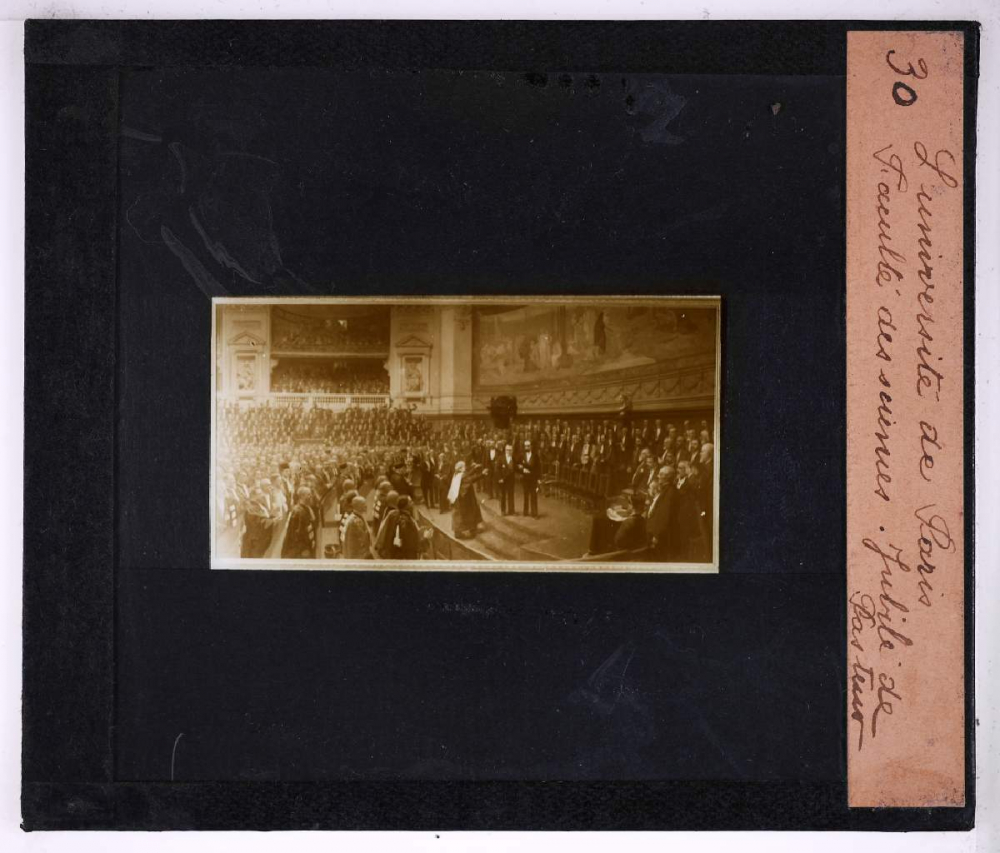 30
L'université de Paris
Faculté des sciences. Jubilé de
Pasteur